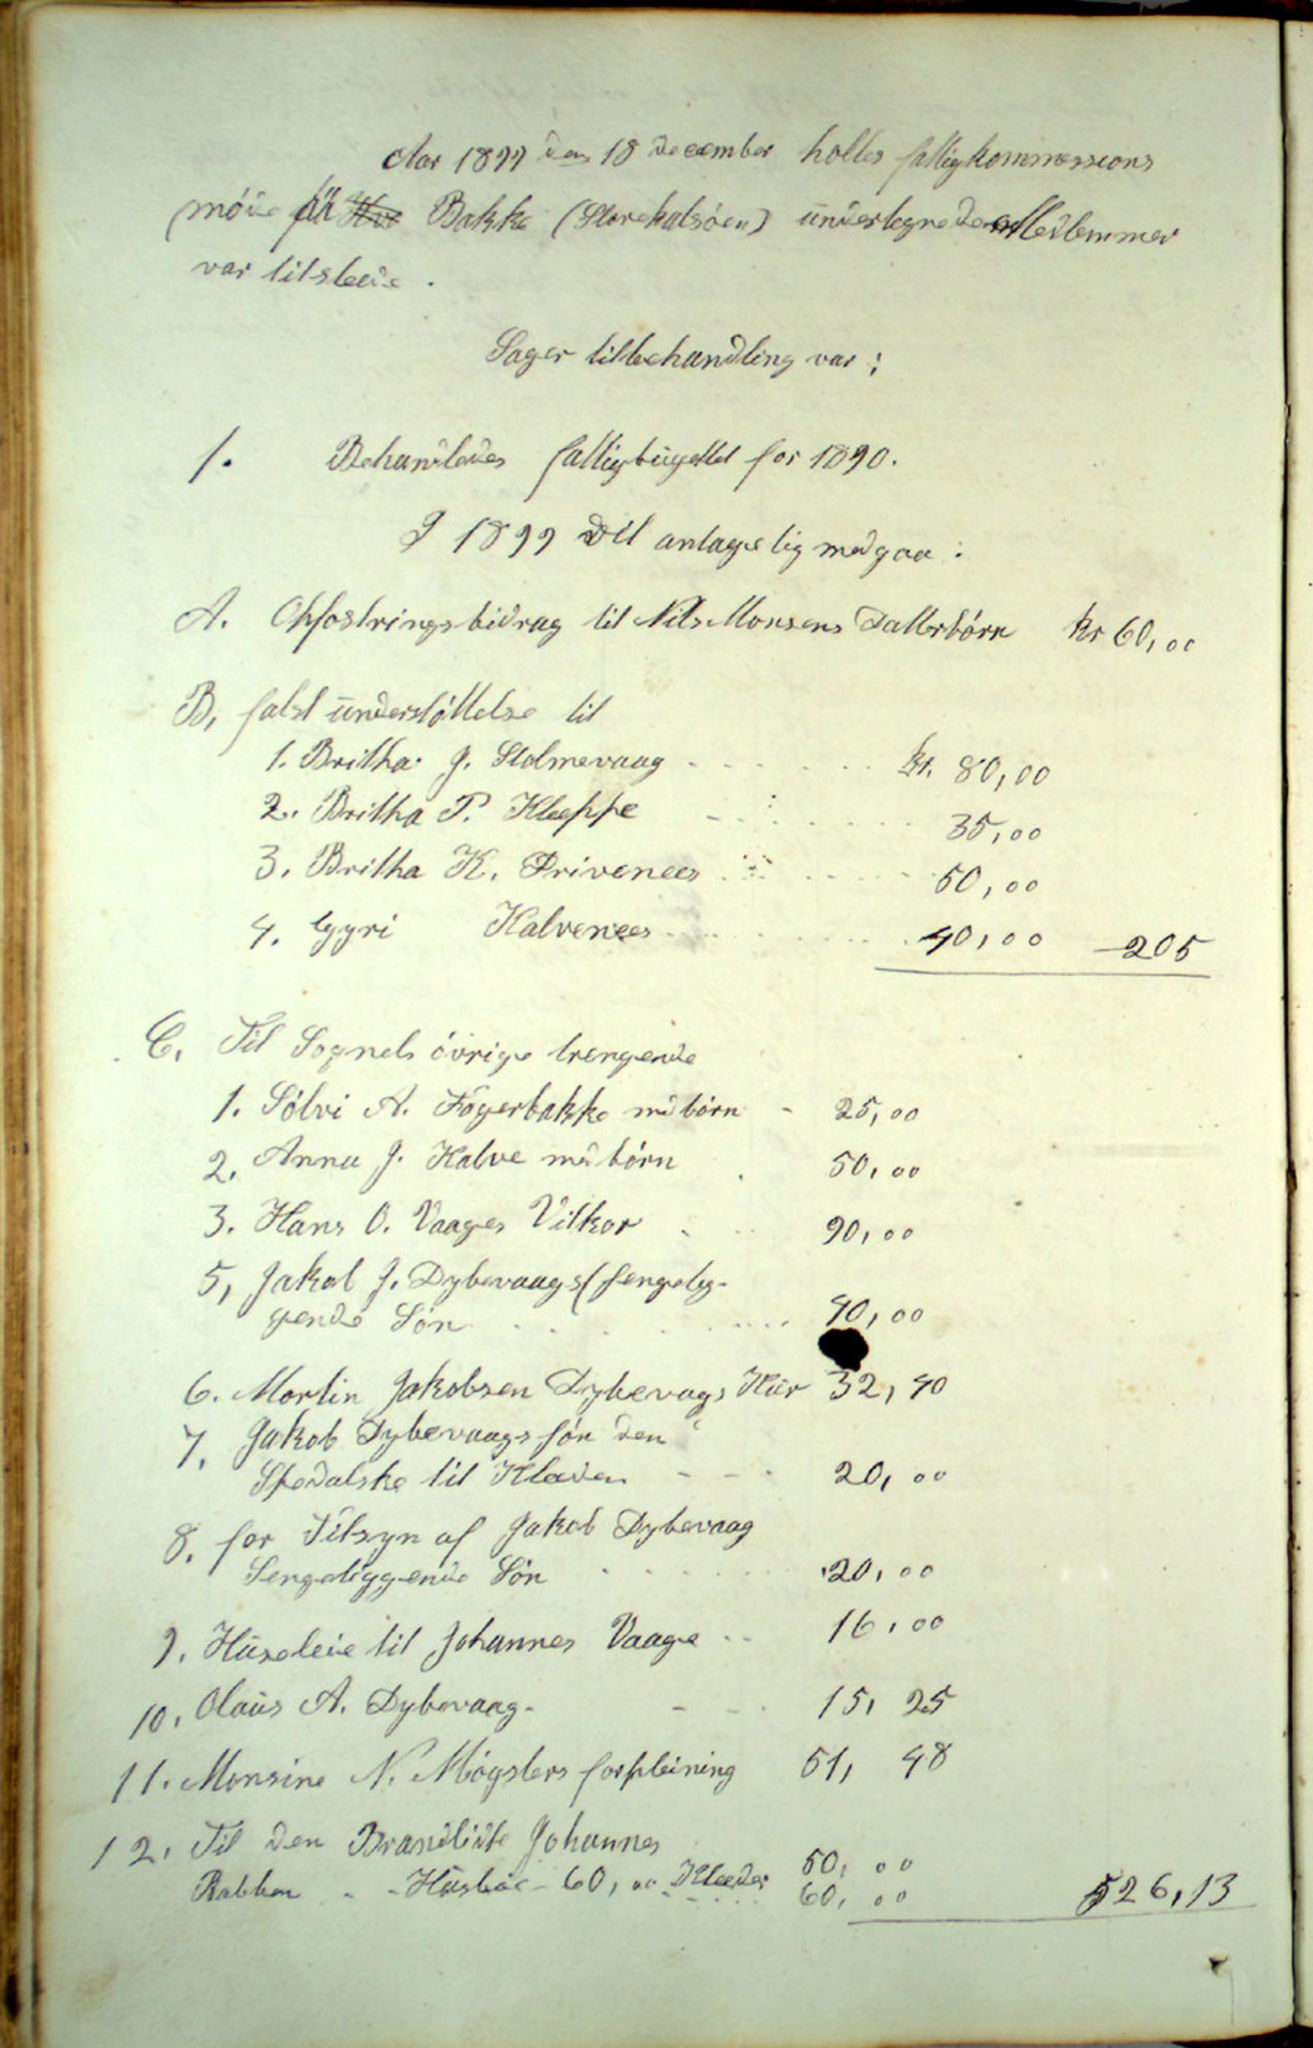 Aar 1899 den 18 December holtes fattigkommessions
møde på Bakke (Storekalsøen) undertegnede Medlemmer
var tilstede.
Sager tilbehandling var:
1. Behandledes fattigbugettet for 1890.
I 1899 Vil antagelig medgaa:
A. Opfostringsbidrag til Nils Monsens Datterbörn kr 60,00
B, fast understöttelse til
1. Britha J. Stolmevaag kr. 80,00
2. Britha P. Kleppe 35,00
3. Britha K. Drivenees 50,00
4. Gyri Kalvenees 40,00 205
C, Til Sognets övrige trengende
1. Sölvi A. Fagerbakke m börn 25,00
2, Anna J. Kalve m börn 50,00
3. Hans O. Vaages Vilkor 90,00
5, Jakob J. Dybevaags (sengelig-
gende Sön 40,00
6. Martin Jakobsen Dybevags Kür 32,40
7. Jakob Dybevaags sön den
Spedalske til Klæder 20,00
8, for Tilsyn af Jakob Dybevaag
Sengeliggende Sön 20,00
9, Husleie til Johannes Vaage 16,00
10, Olaus A. Dybevaag 15,25
11. Monsine N. Møgsters forpleining 51,48
12, Til den Brandlidte Johannes 50,00
Husleie 60,00 Klæder 60,00 526,13